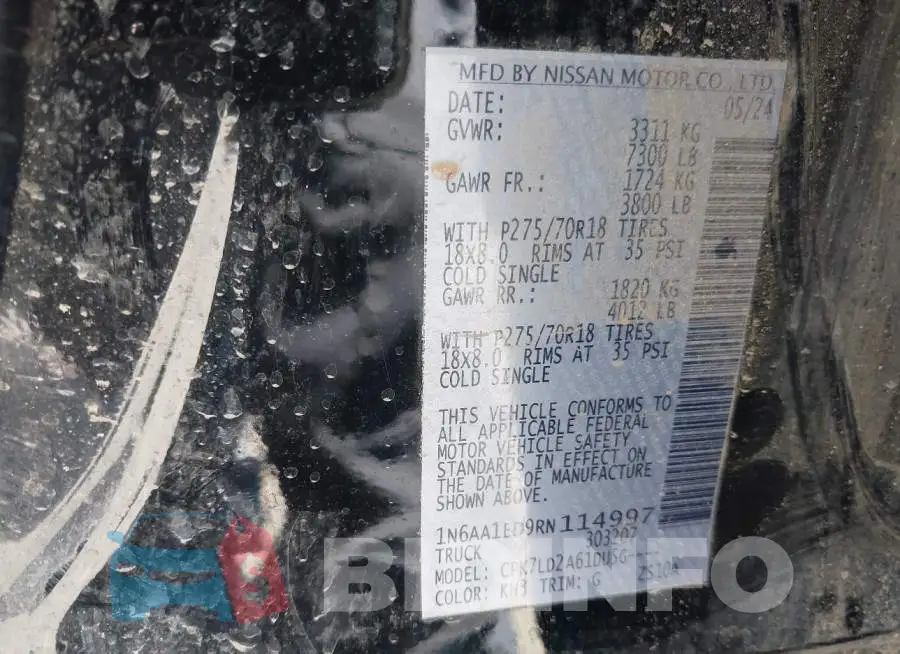 MFD BY NISSAN MOTOR CO., LTD.
DATE: 05/24
GVWR: 3311 KG
7300 LB
GAWR FR.: 1724 KG
3800 LB
WITH P275/70R18 TIRES
18X8.0 RIMS AT 35 PSI
COLD SINGLE
GAWR RR.: 1820 KG
4012 LB
WITH P275/70R18 TIRES
18X8.0 RIMS AT 35 PSI
COLD SINGLE
THIS VEHICLE CONFORMS TO
ALL APPLICABLE FEDERAL
MOTOR VEHICLE SAFETY
STANDARDS IN EFFECT ON
THE DATE OF MANUFACTURE
SHOWN ABOVE.
1N6AA1ED9RN114997
TRUCK 303207
MODEL:
COLOR: KH3 TRIM: G